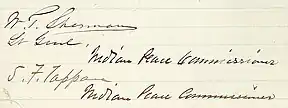 W. T. Sherman
Lt Genl.
Indian Peace Commissioner
S. F. Tappan
Indian Peace Commissioner